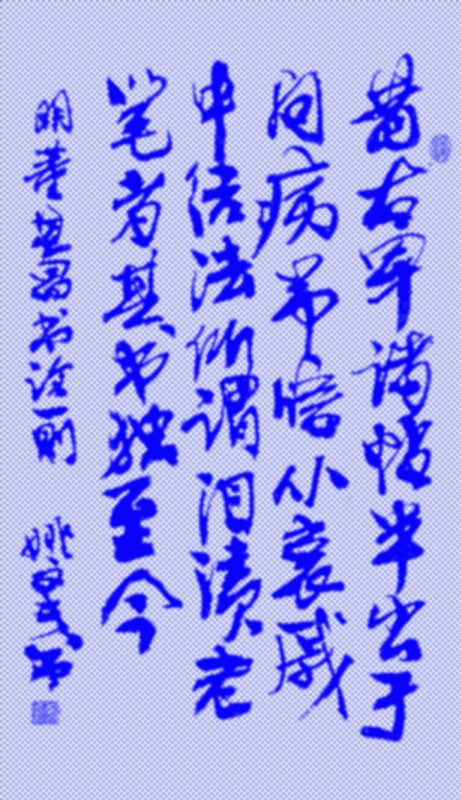 昔右军诸帖半出于
问病吊唁从哀戚
中结法所谓泪渍老
笔者其书独至今
明董其昌书诠一则 姚